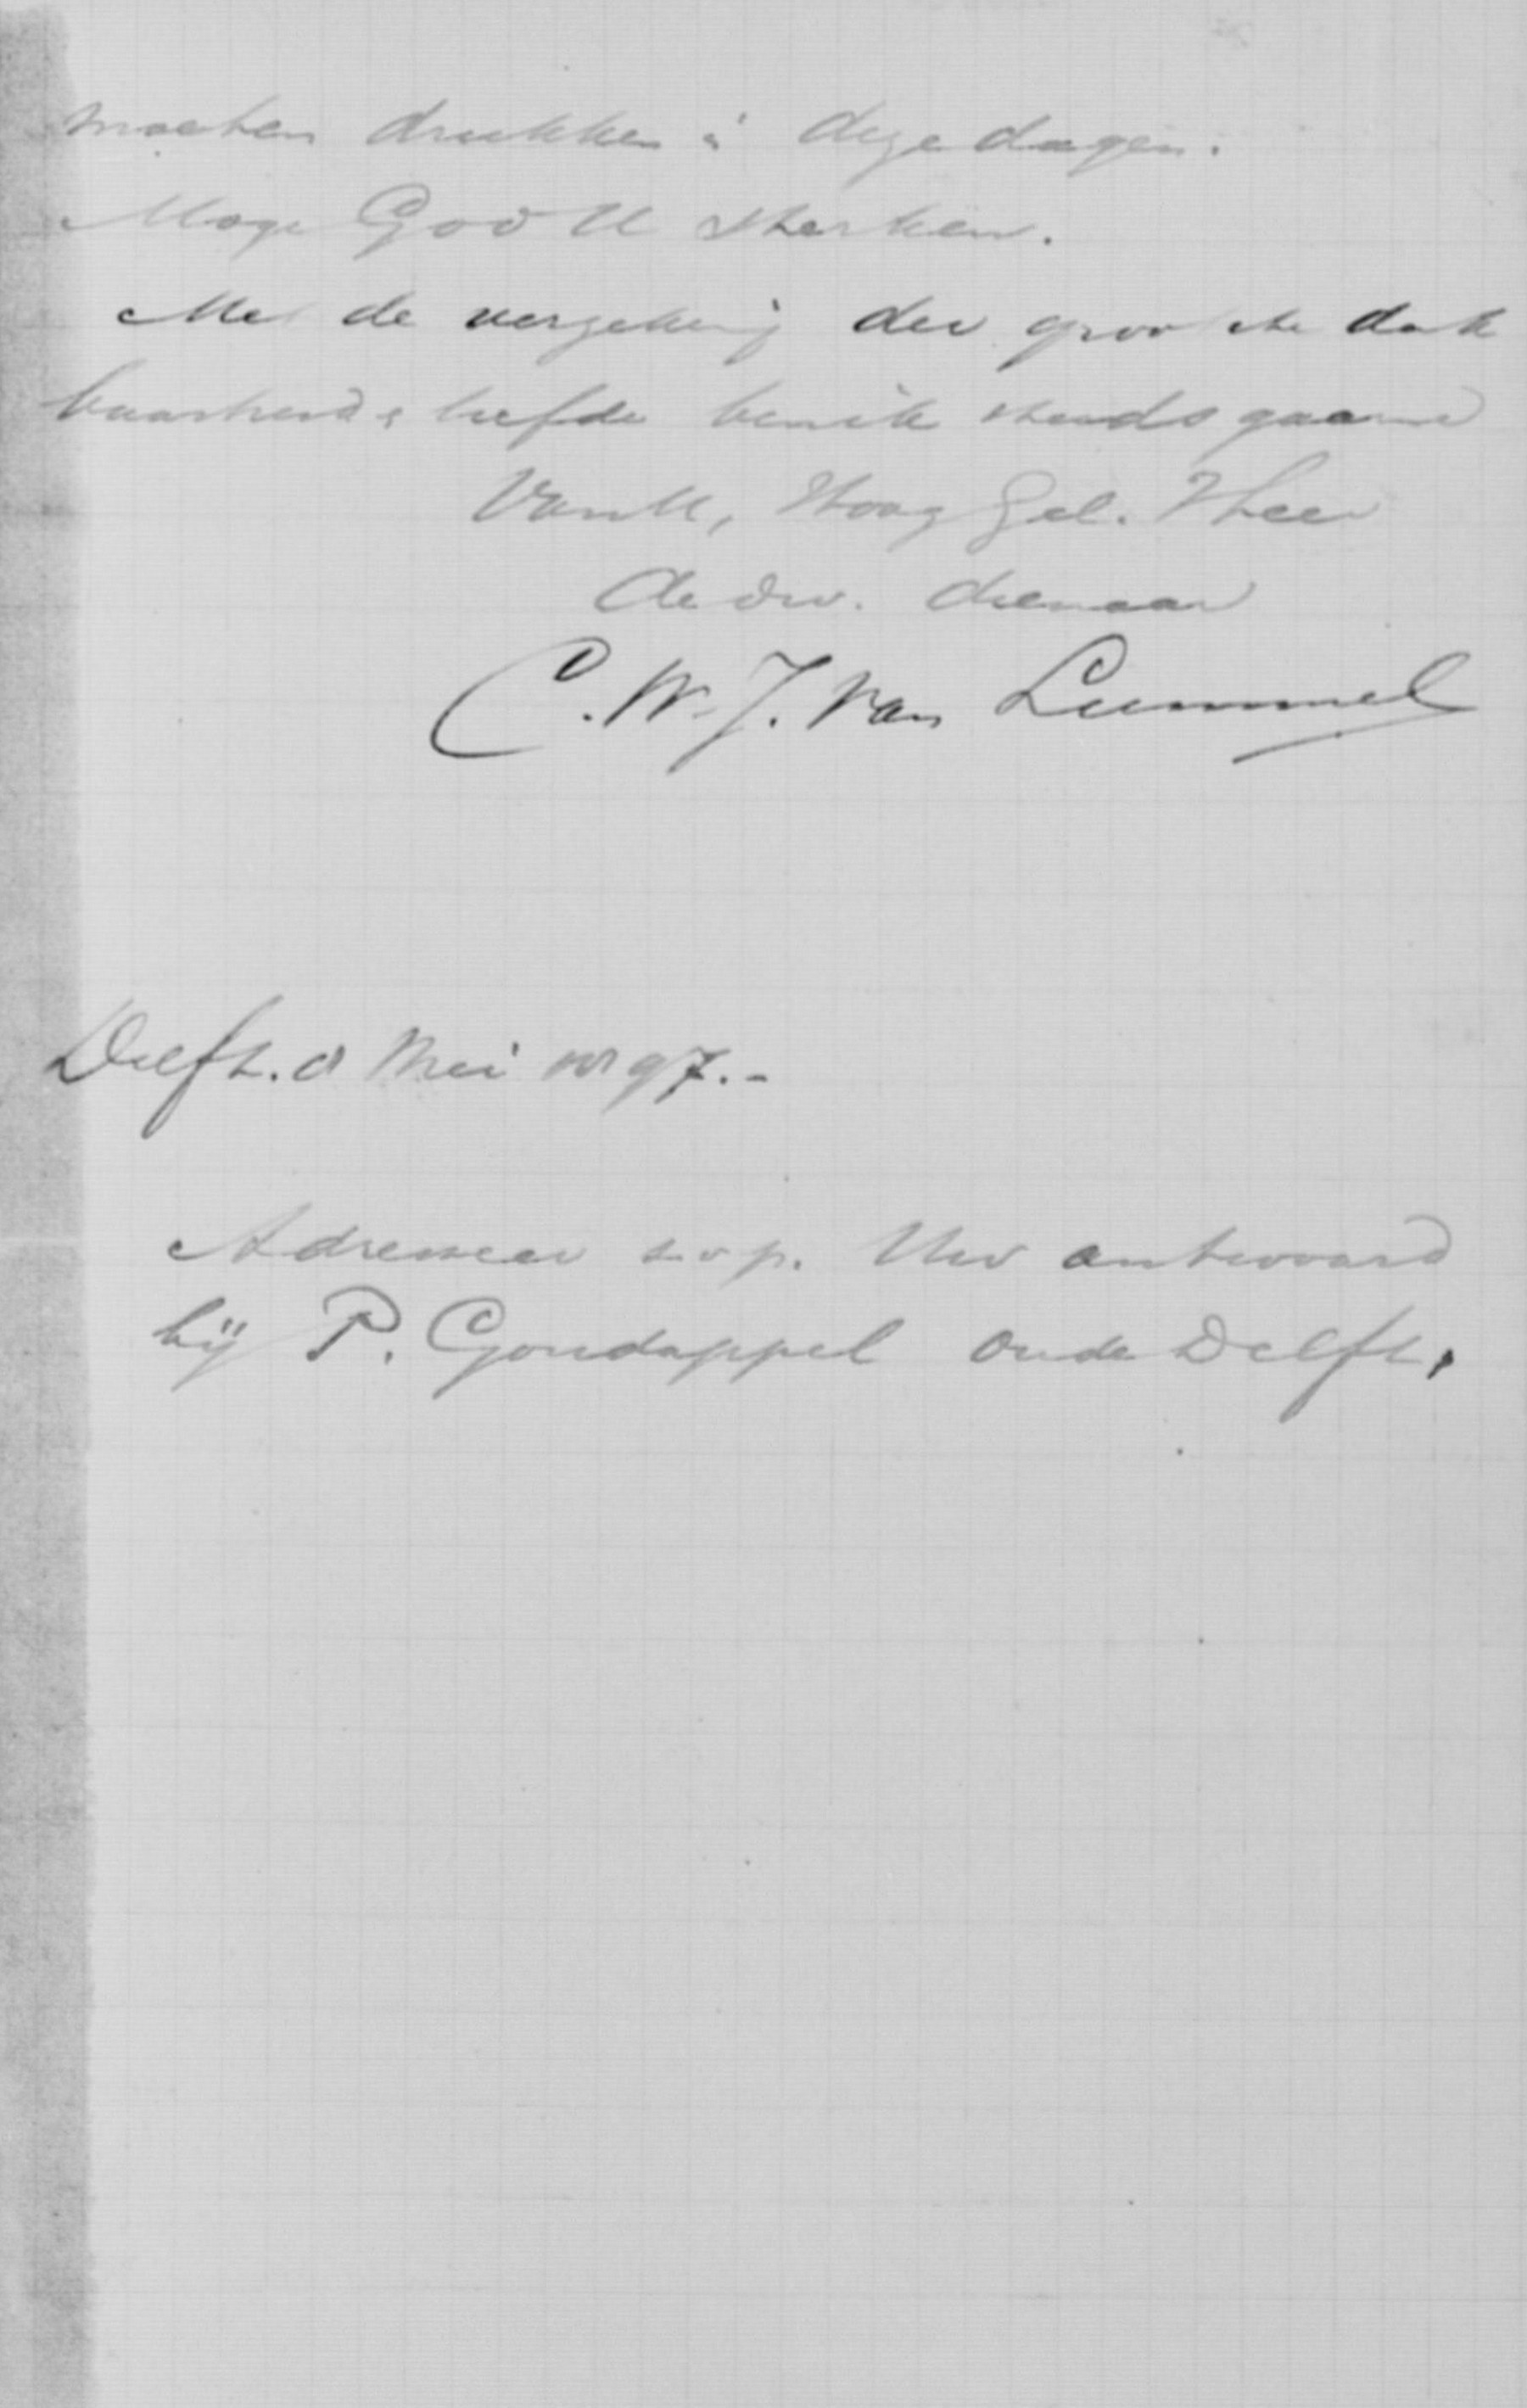 moeten drukken in deze dagen.
Moge God U sterken.
Met de verzekering der grootste dank
baarheid & liefde ben ik steeds gaarne
Van U, Hoog Gel. Heer
de dw. dienaar
C. W. J. Van Lummel
Delft. 8 Mei 1897.-
Adresseer s.v.p. Uw antwoord
bij P. Goudappel Oude Delft.